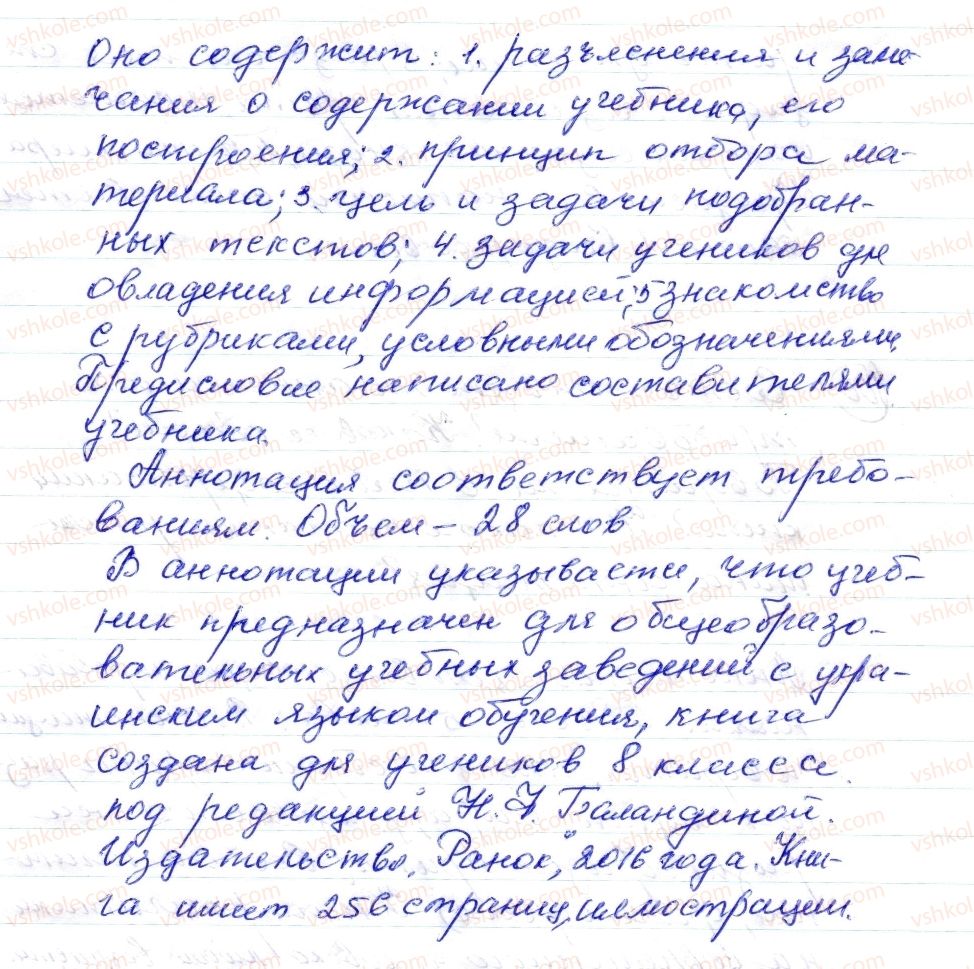 Оно содержит: 1. разъяснения и заме-
чания о содержании учебника, его
построения; 2. принцип отбора ма-
териала; 3. цель и задачи подобран-
ных текстов; 4. задачи учеников для
овладения информацией; 5 знакомство
с рубриками, условными обозначениями.
Предисловие написано составителями
учебника.
Аннотация соответствует требо-
ваниям. Объем – 28 слов
В аннотации указывается, что учеб-
ник предназначен для общеобразо-
вательных учебных заведений с укра-
инским языком обучения, книга
создана для учеников 8 класса
под редакцией Н.Ф. Баландиной.
Издательство "Ранок", 2016 года. Кни-
га имеет 256 страниц, иллюстрации.
vshkole.com